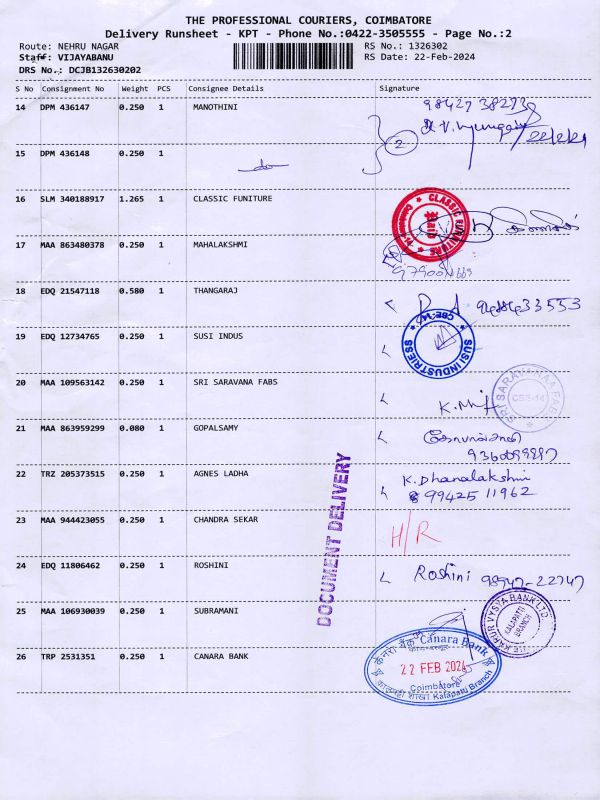 THE PROFESSIONAL COURIERS, COIMBATORE
Delivery Runsheet - KPT - Phone No.:0422-3505555 - Page No.:2
Route: NEHRU NAGAR RS No.: 1326302
Staff: VIJAYABANU RS Date: 22-Feb-2024
DRS No.: DCJB132630202
S No Consignment No Weight PCS Consignee Details Signature
14 DPM 436147 0.250 1 MANOTHINI
22/2/24
15 DPM 436148 0.250 1
2
16 SLM 340188917 1.265 1 CLASSIC FUNITURE
CLASSIC FURNITURE
17 MAA 863480378 0.250 1 MAHALAKSHMI
18 EDQ 21547118 0.580 1 THANGARAJ
19 EDQ 12734765 0.250 1 SUSI INDUS
SUSI INDUSTRIES CBE-14
20 MAA 109563142 0.250 1 SRI SARAVANA FABS
SRI SARAVANAA FAB CBE-14
21 MAA 863959299 0.080 1 GOPALSAMY
22 TRZ 205373515 0.250 1 AGNES LADHA K. Dhanalakshmi
99425 11962
DOCUMENT DELIVERY
23 MAA 944423055 0.250 1 CHANDRA SEKAR H/R
24 EDQ 11806462 0.250 1 ROSHINI Roshini 98947-22747
25 MAA 106930039 0.250 1 SUBRAMANI
VYSYA BANK LTD.
KALAPATTI
BRANCH
26 TRP 2531351 0.250 1 CANARA BANK
केनरा बैंक Canara Bank
22 FEB 2024
Coimbatore
शाखा Kalapatti Branch